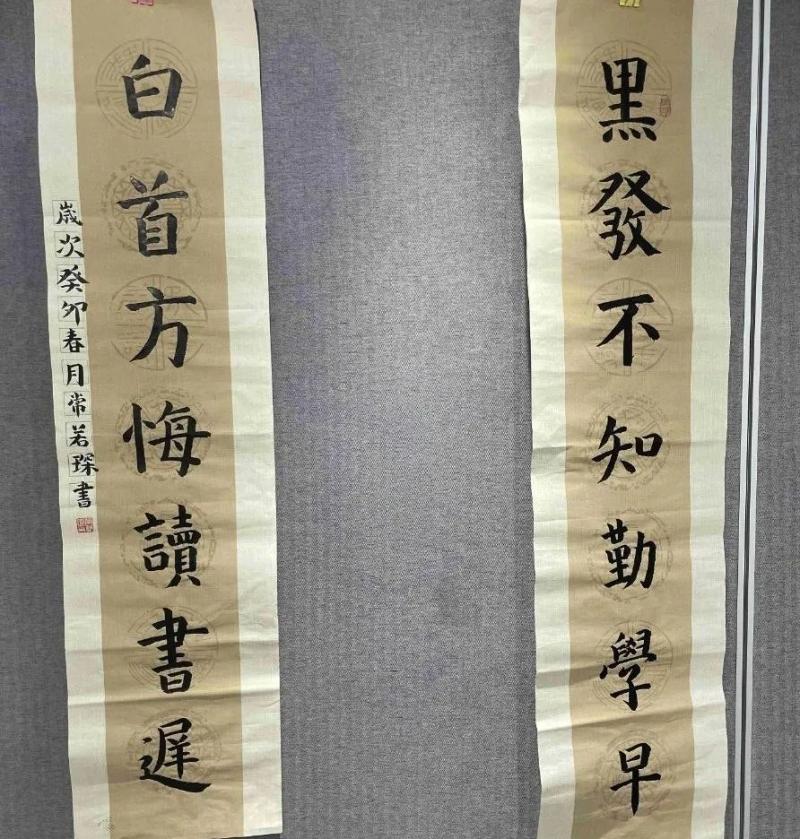 黑發不知勤學早
白首方悔讀書遲
歲次癸卯春月常若琛書